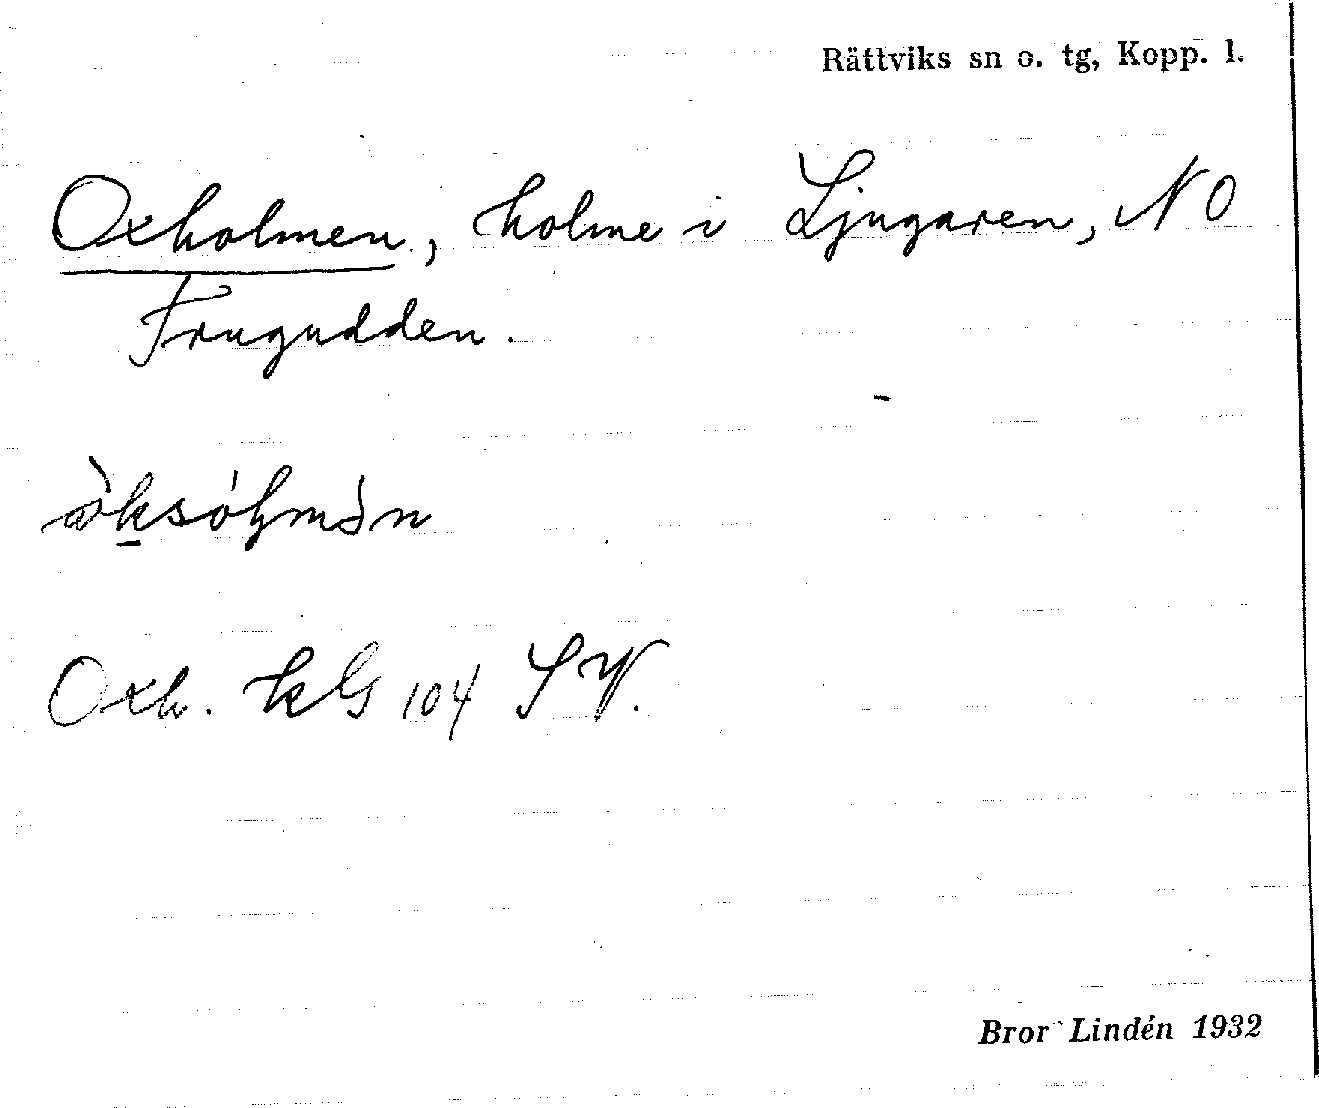 Rättviks sn o. tg, Kopp. l.
Oxholmen, holme i Ljugaren, NO
Frugudden.
Oxh. kG 104 SV.
Bror Lindén 1932